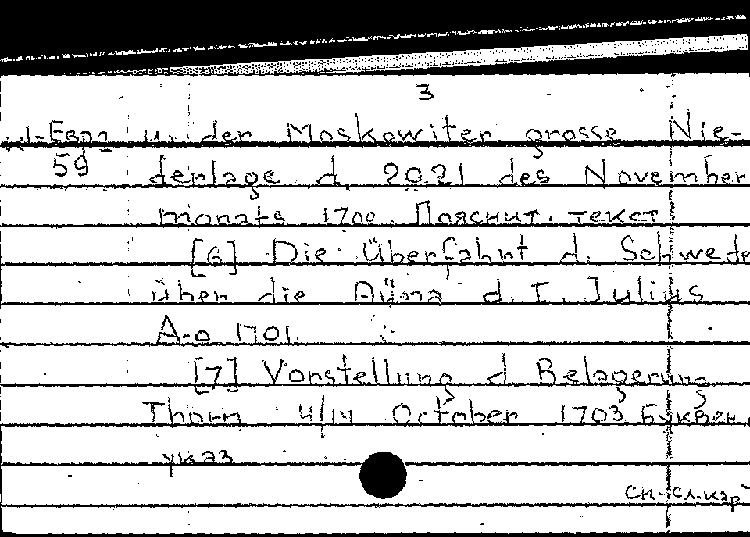 3
u. der Moskowiter grosse Nie-
59 derlage d. 20.21 des November
monats 1700. Пояснит. текст
[6] Die Überfahrt d. Schwede
über die Düna d. I. Julius
A-o 1701.
[7] Vorstellung d Belagerung
Thorn 4/14 October 1703 Буквен.
указ
см. сл. кар